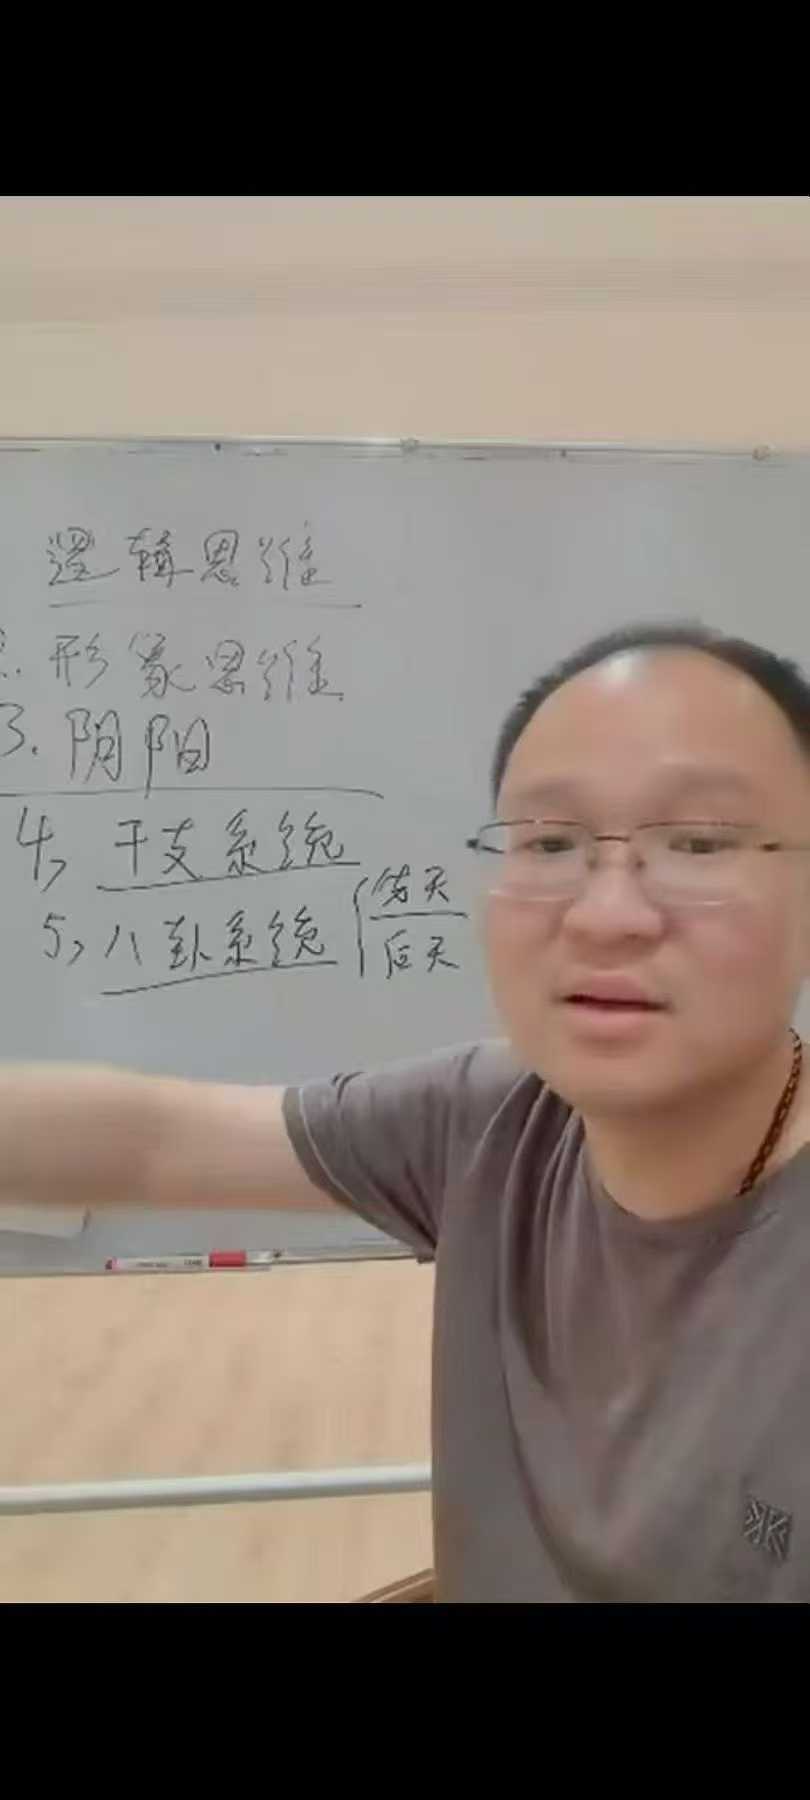 邏輯思维
2. 形象思维
3. 阴阳
4, 干支系统
5, 八卦系统 { 先天
后天